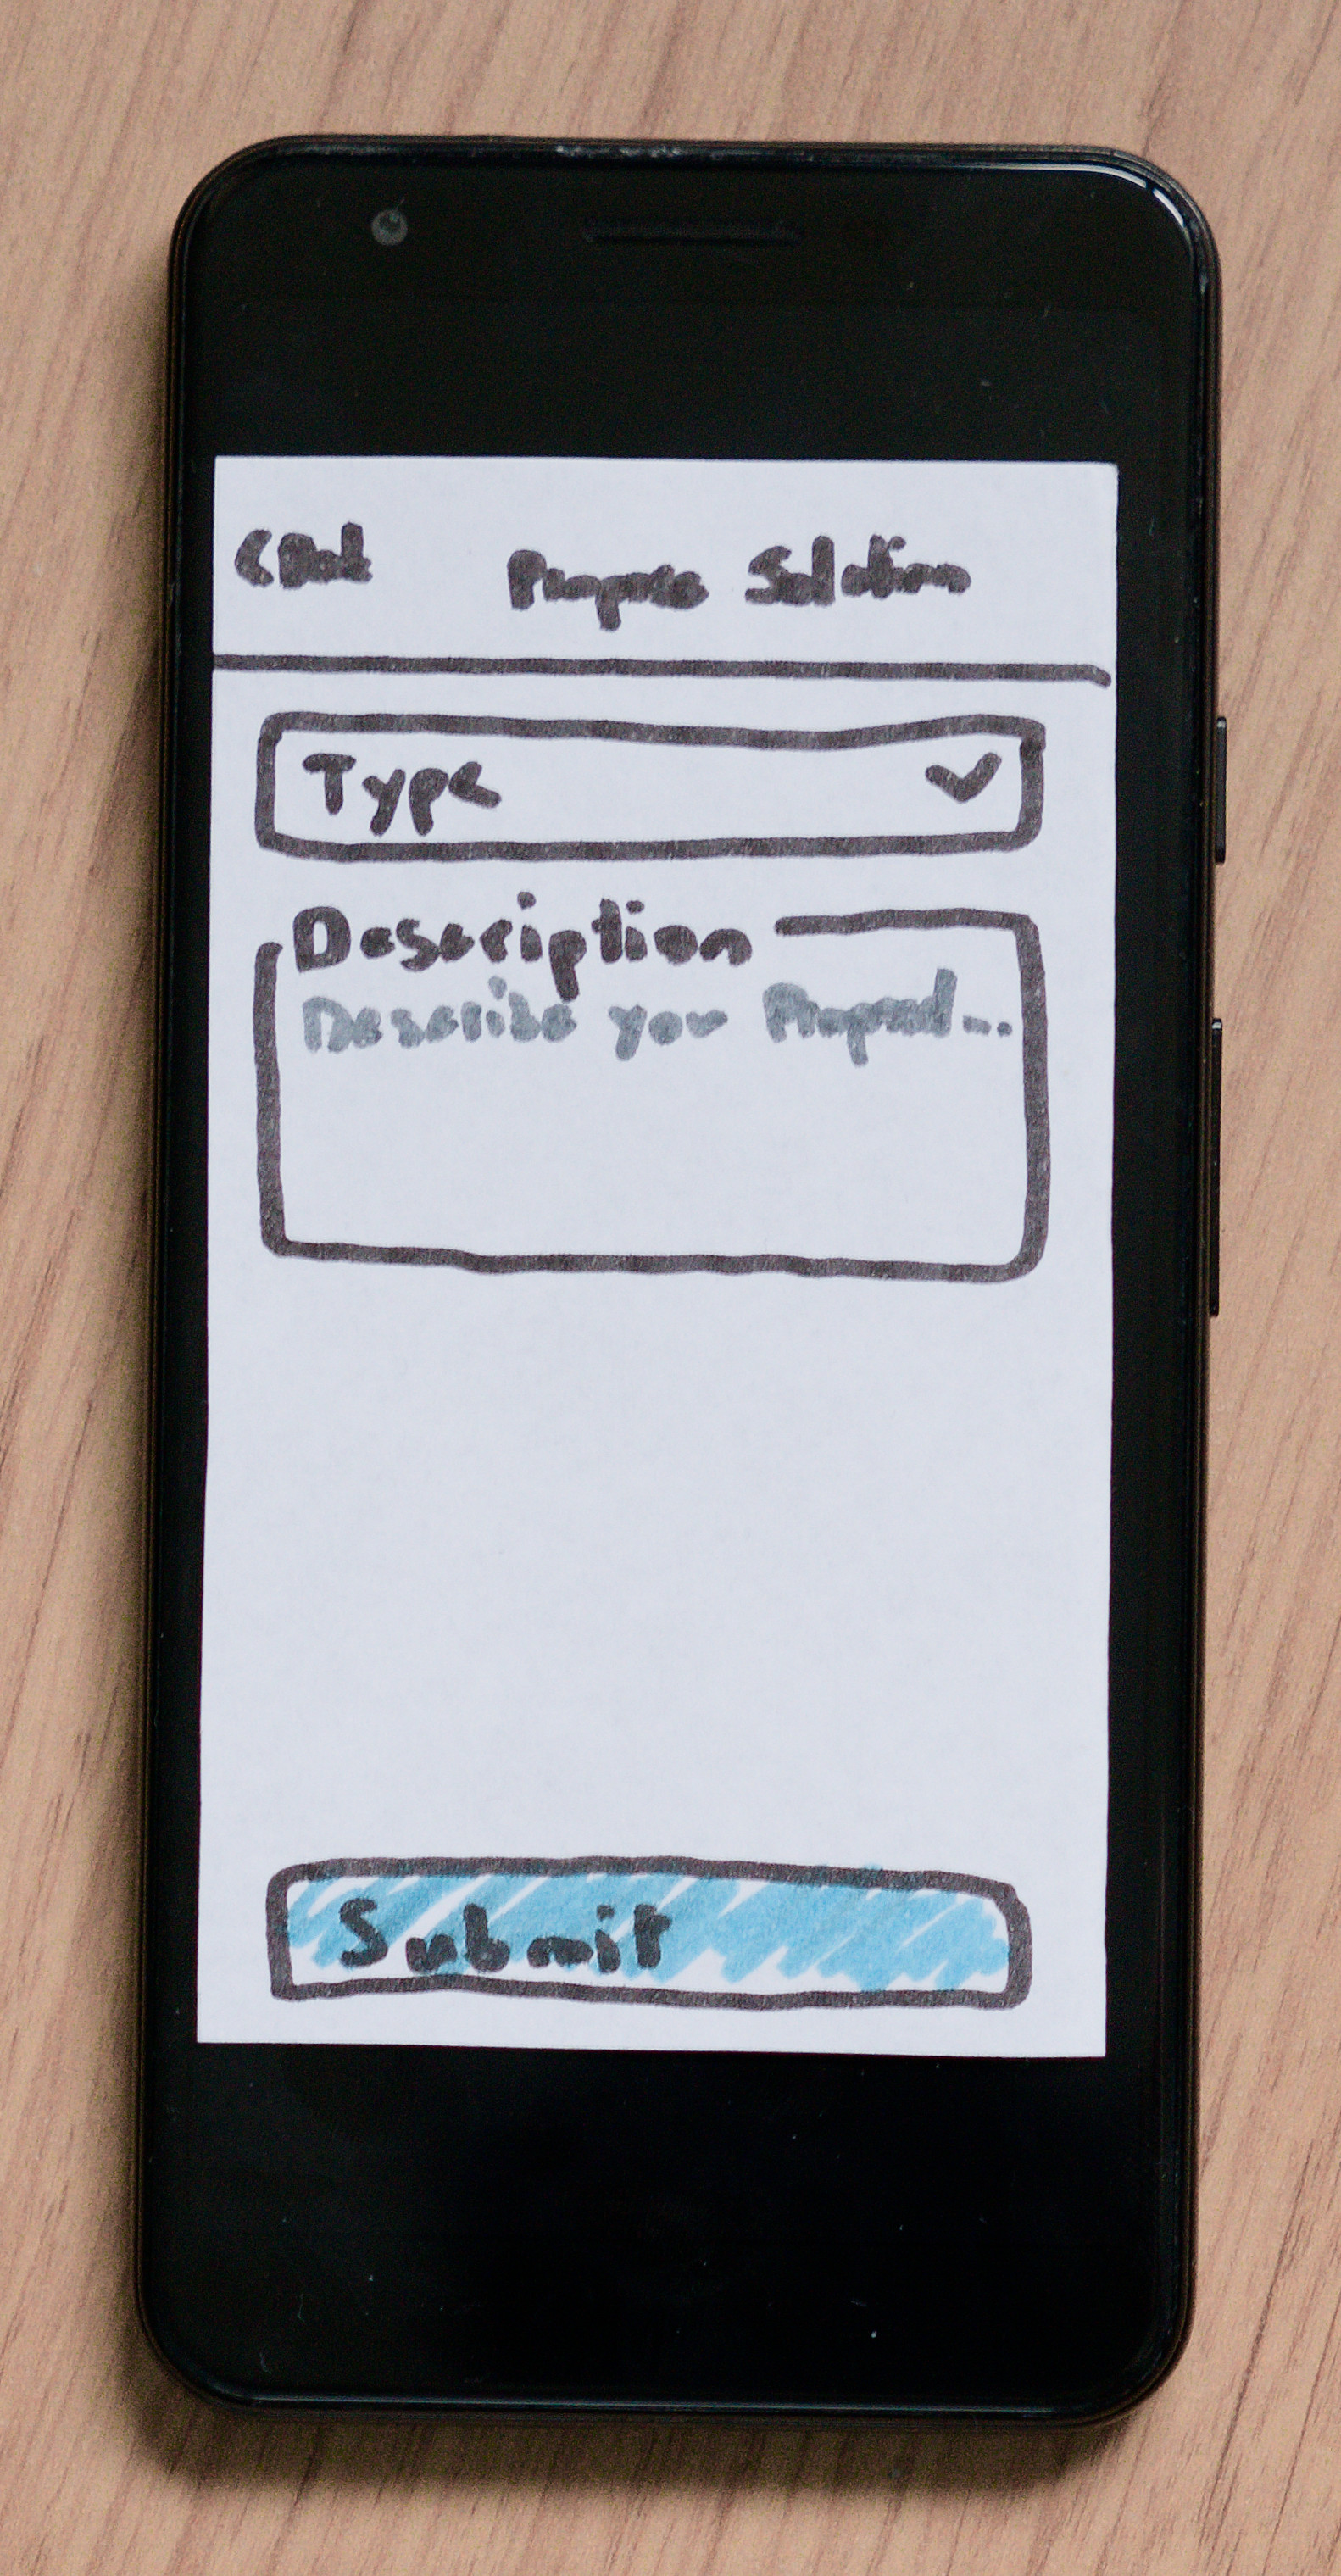 < Back Propose Solution
Type
Description
Describe your Proposal...
Submit